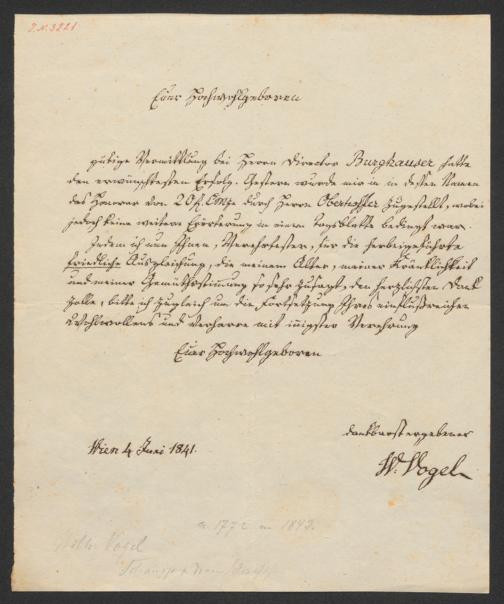 I.N. 3221
Euer Hochwohlgeboren
gütige Vermittlung bei Herrn Director Burghauser hatte
den erwünschtesten Erfolg. Gestern wurde mir in dessen Namen
das Honorar von 20 f. CMze durch Herrn zugestellt, wobei
jedoch keine weitere Erörterung in einem Tagsblatte bedingt war.
Indem ich nun Ihnen, Verehrtester, für die herbeigeführte
friedliche Ausgleichung, die meinem Alter, meiner Kränklichkeit
und meiner Gemüthsstimmung so sehr zusagt, den herzlichsten Dank
zolle, bitte ich zugleich um die Fortsetzung Ihres einflußreichen
Wohlwollens und verharre mit innigster Verehrung
Euer Hochwohlgeboren
dankbarst ergebener
Wien 4 Juni 1841.
W. Vogel
1772 1843.
Wilh. Vogel